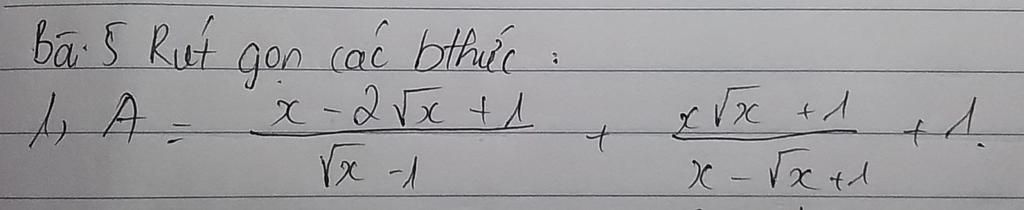 Bā. 5 Rút gọn các bthức :
1, A = (x - 2√x + 1)/(√x - 1) + (x√x + 1)/(x - √x + 1) + 1.